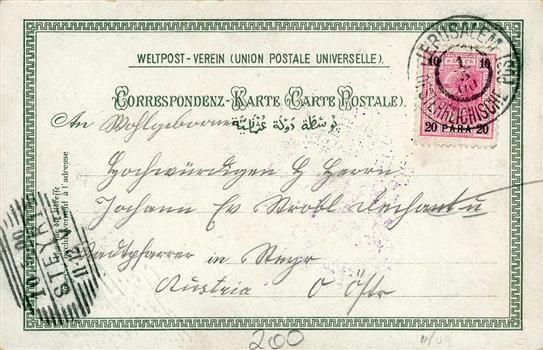 WELTPOST-VEREIN (UNION POSTALE UNIVERSELLE).
CORRESPONDENZ-KARTE (CARTE POSTALE).
An Wohlgeboren
Hochwürdigen H Herrn
Johann Ev Strobl Dechant u
Stadtpfarrer in Steyr
Austria O Östr
JERUSALEM
ÖSTERREICHISCHE POST
10 10
20 PARA 20
STEYR
200